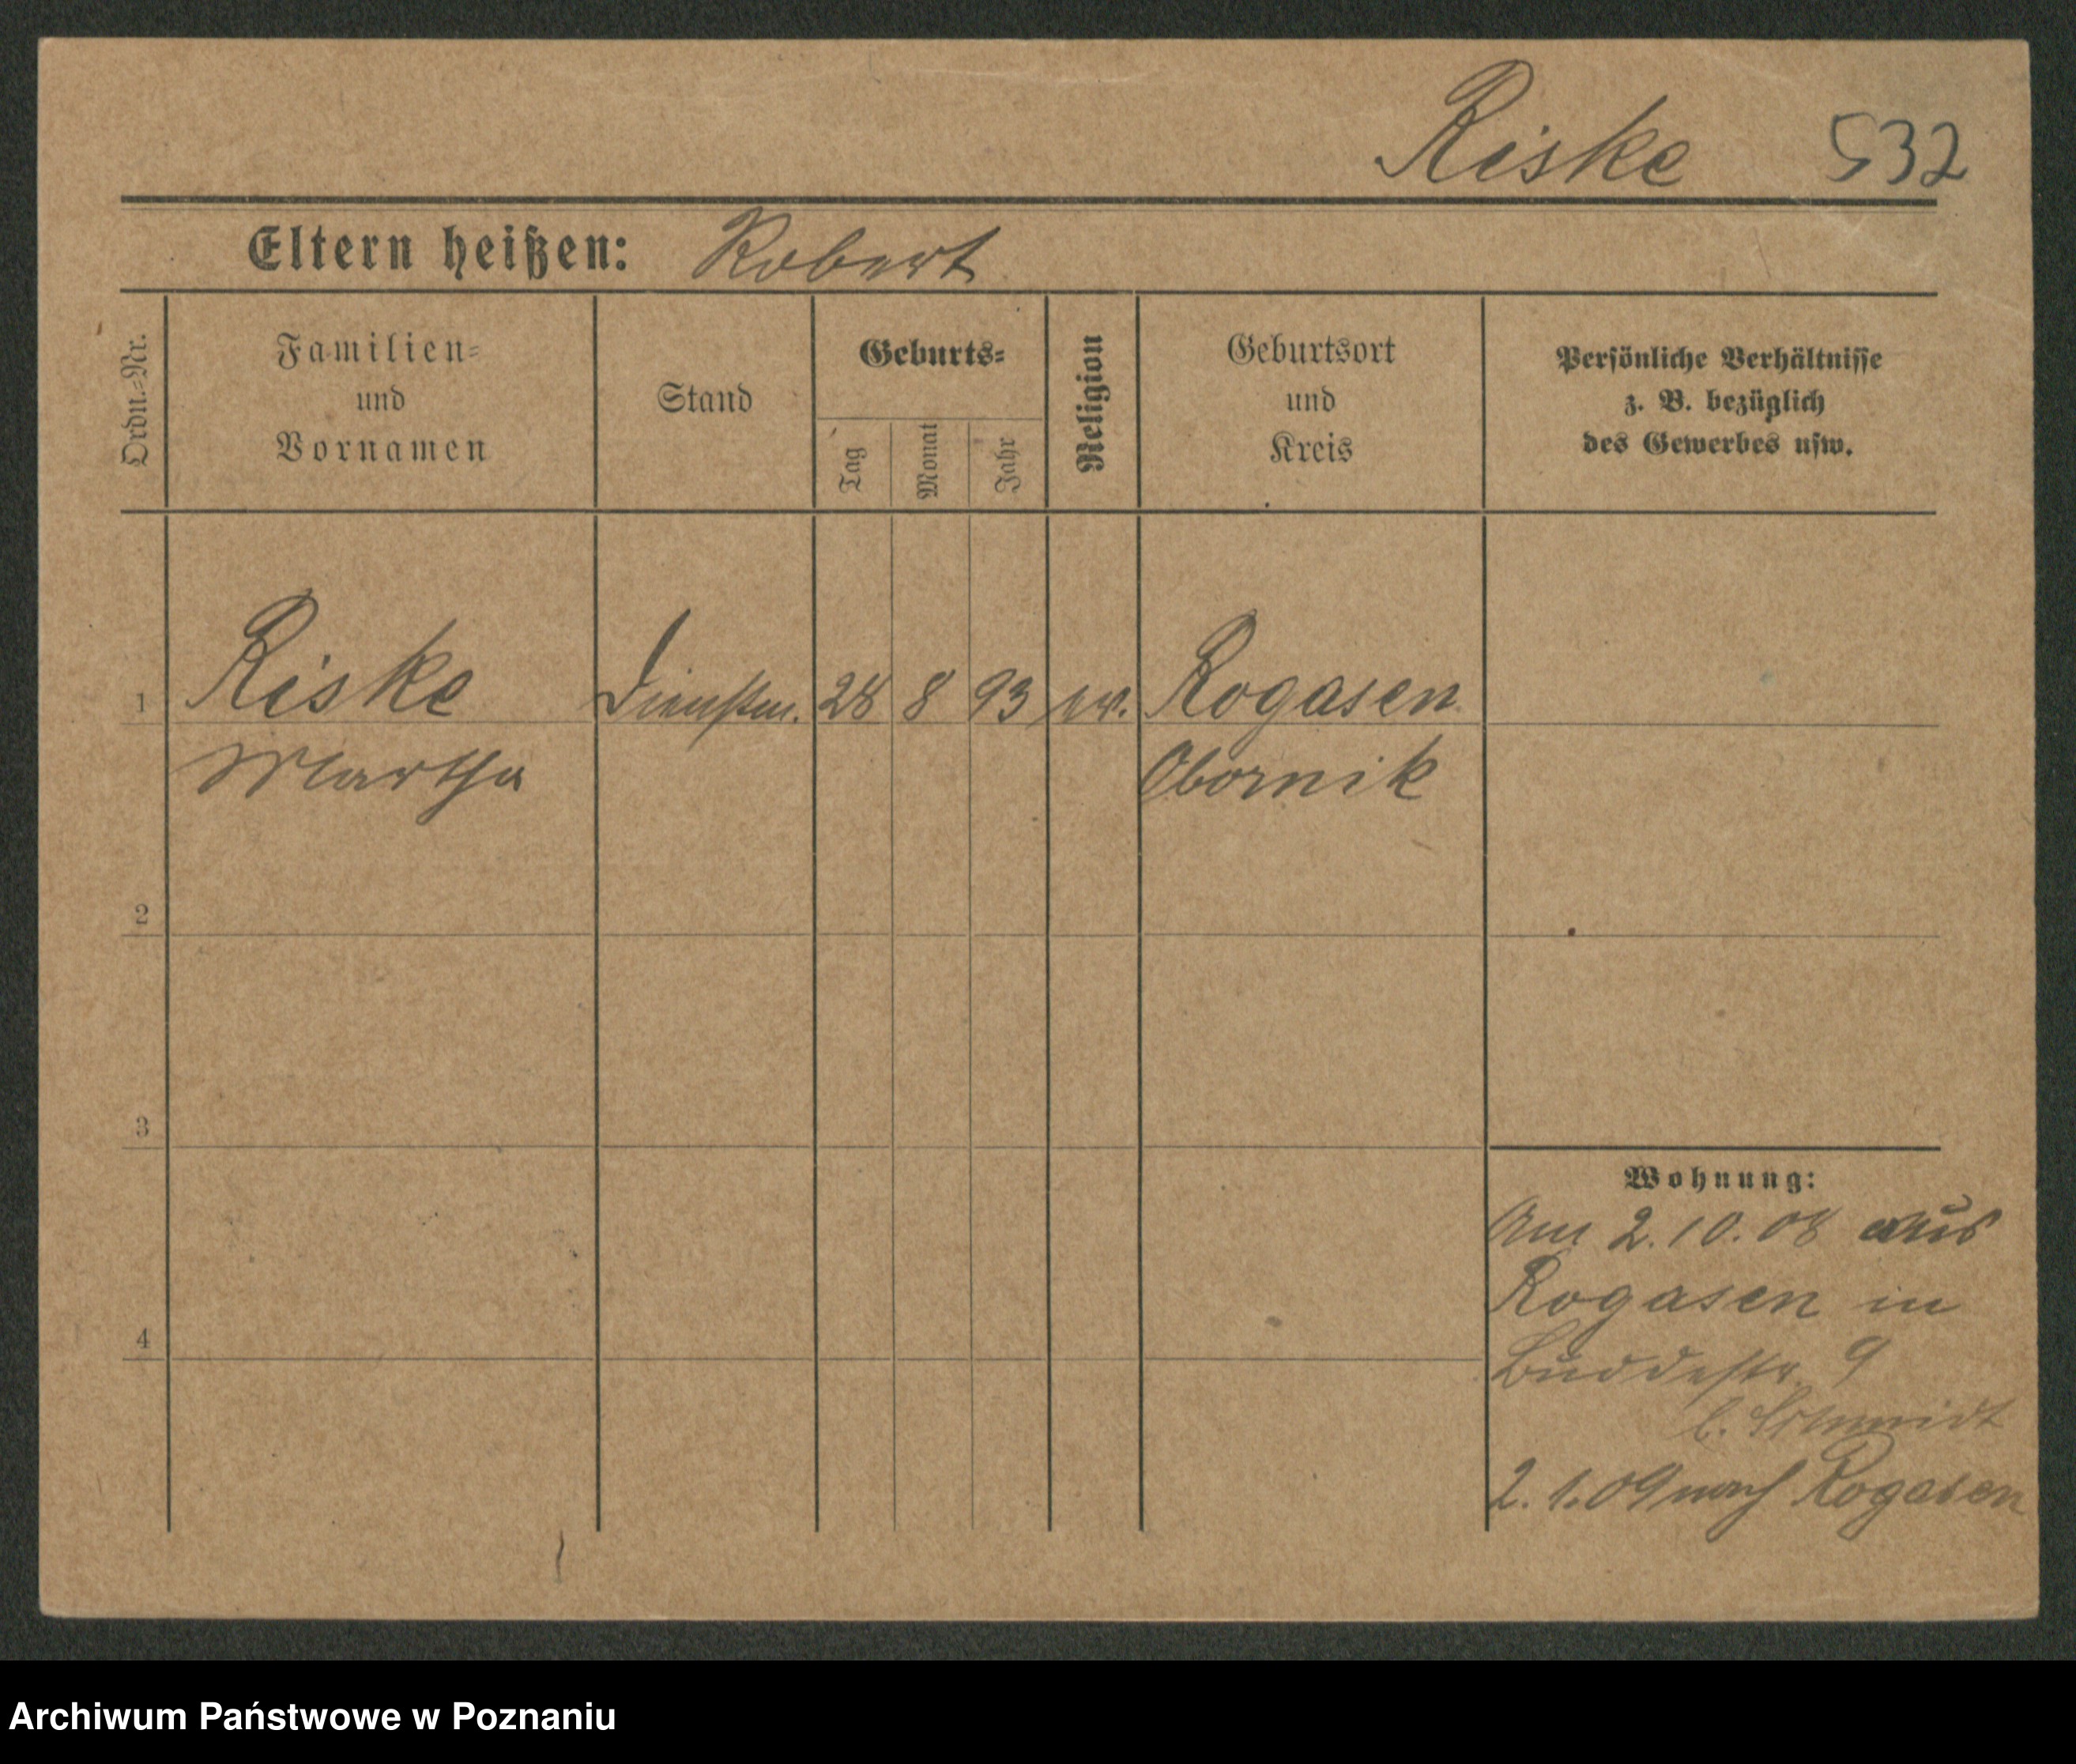 Riske 532
Eltern heißen: Robert
Ordn.-Nr.
Familien-
und
Vornamen
Stand
Geburts-
Tag
Monat
Jahr
Religion
Geburtsort
und
Kreis
Persönliche Verhältnisse
z. B. bezüglich
des Gewerbes usw.
1 Riske Dienstm. 28 8 93 ev. Rogasen
Martha Obornik
2
3
4
Wohnung:
Am 2.10.08 aus
Rogasen in
Buddestr. 9
b. Schmidt
2.1.09 nach Rogasen
Archiwum Państwowe w Poznaniu